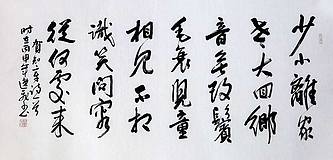 少小離家
老大回鄉
音無改鬢
毛衰兒童
相見不相
識笑問客
從何處來
賀知章詩一首